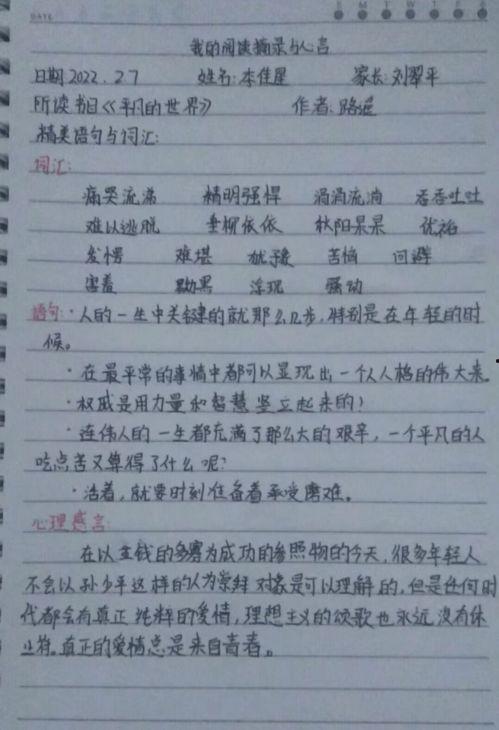 DATE S M T W T F S
我的阅读摘录与心言
日期2022.2.7 姓名:李佳星 家长:刘翠平
所读书目《平凡的世界》 作者:路遥
精美语句与词汇:
词汇:
痛哭流涕 精明强悍 涓涓流淌 吞吞吐吐
难以逃脱 垂柳依依 秋阳杲杲 优裕
发愣 难堪 犹豫 苦恼 回避
害羞 黝黑 浮现 骚动
语句:·人的一生中关键的就那么几步,特别是在年轻的时
候。
·在最平常的事情中都可以显现出一个人人格的伟大来。
·权威是用力量和智慧竖立起来的!
·连伟人的一生都充满了那么大的艰辛,一个平凡的人
吃点苦又算得了什么呢?
·活着,就要时刻准备着承受磨难。
心理感言:
在以金钱的多寡为成功的参照物的今天,很多年轻人
不会以孙少平这样的人为崇拜对象是可以理解的,但是任何时
代都会有真正纯粹的爱情,理想主义的颂歌也永远没有休
止符。真正的爱情总是来自青春。